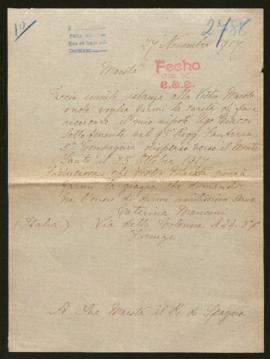 10
2788
27 Novembre 1917
Fecho
e.a.e.
Maestà
Faccio umile istanza alla Vostra Maestà
onde voglia farmi la carità di fare
ricercare il mio nipote Ugo
sottotenente nel Regg. Fanteria
5ª Compagnia disperso verso il Monte
Santo il 25 Ottobre 1917
Fiduciosa che Vostra Maestà vorrà
farmi la grazia che domando
ho l'onore di dirmi umilissima serva
Caterina Mancini
(Italia) Via della Colonna
Firenze
A Sua Maestà il Re di Spagna